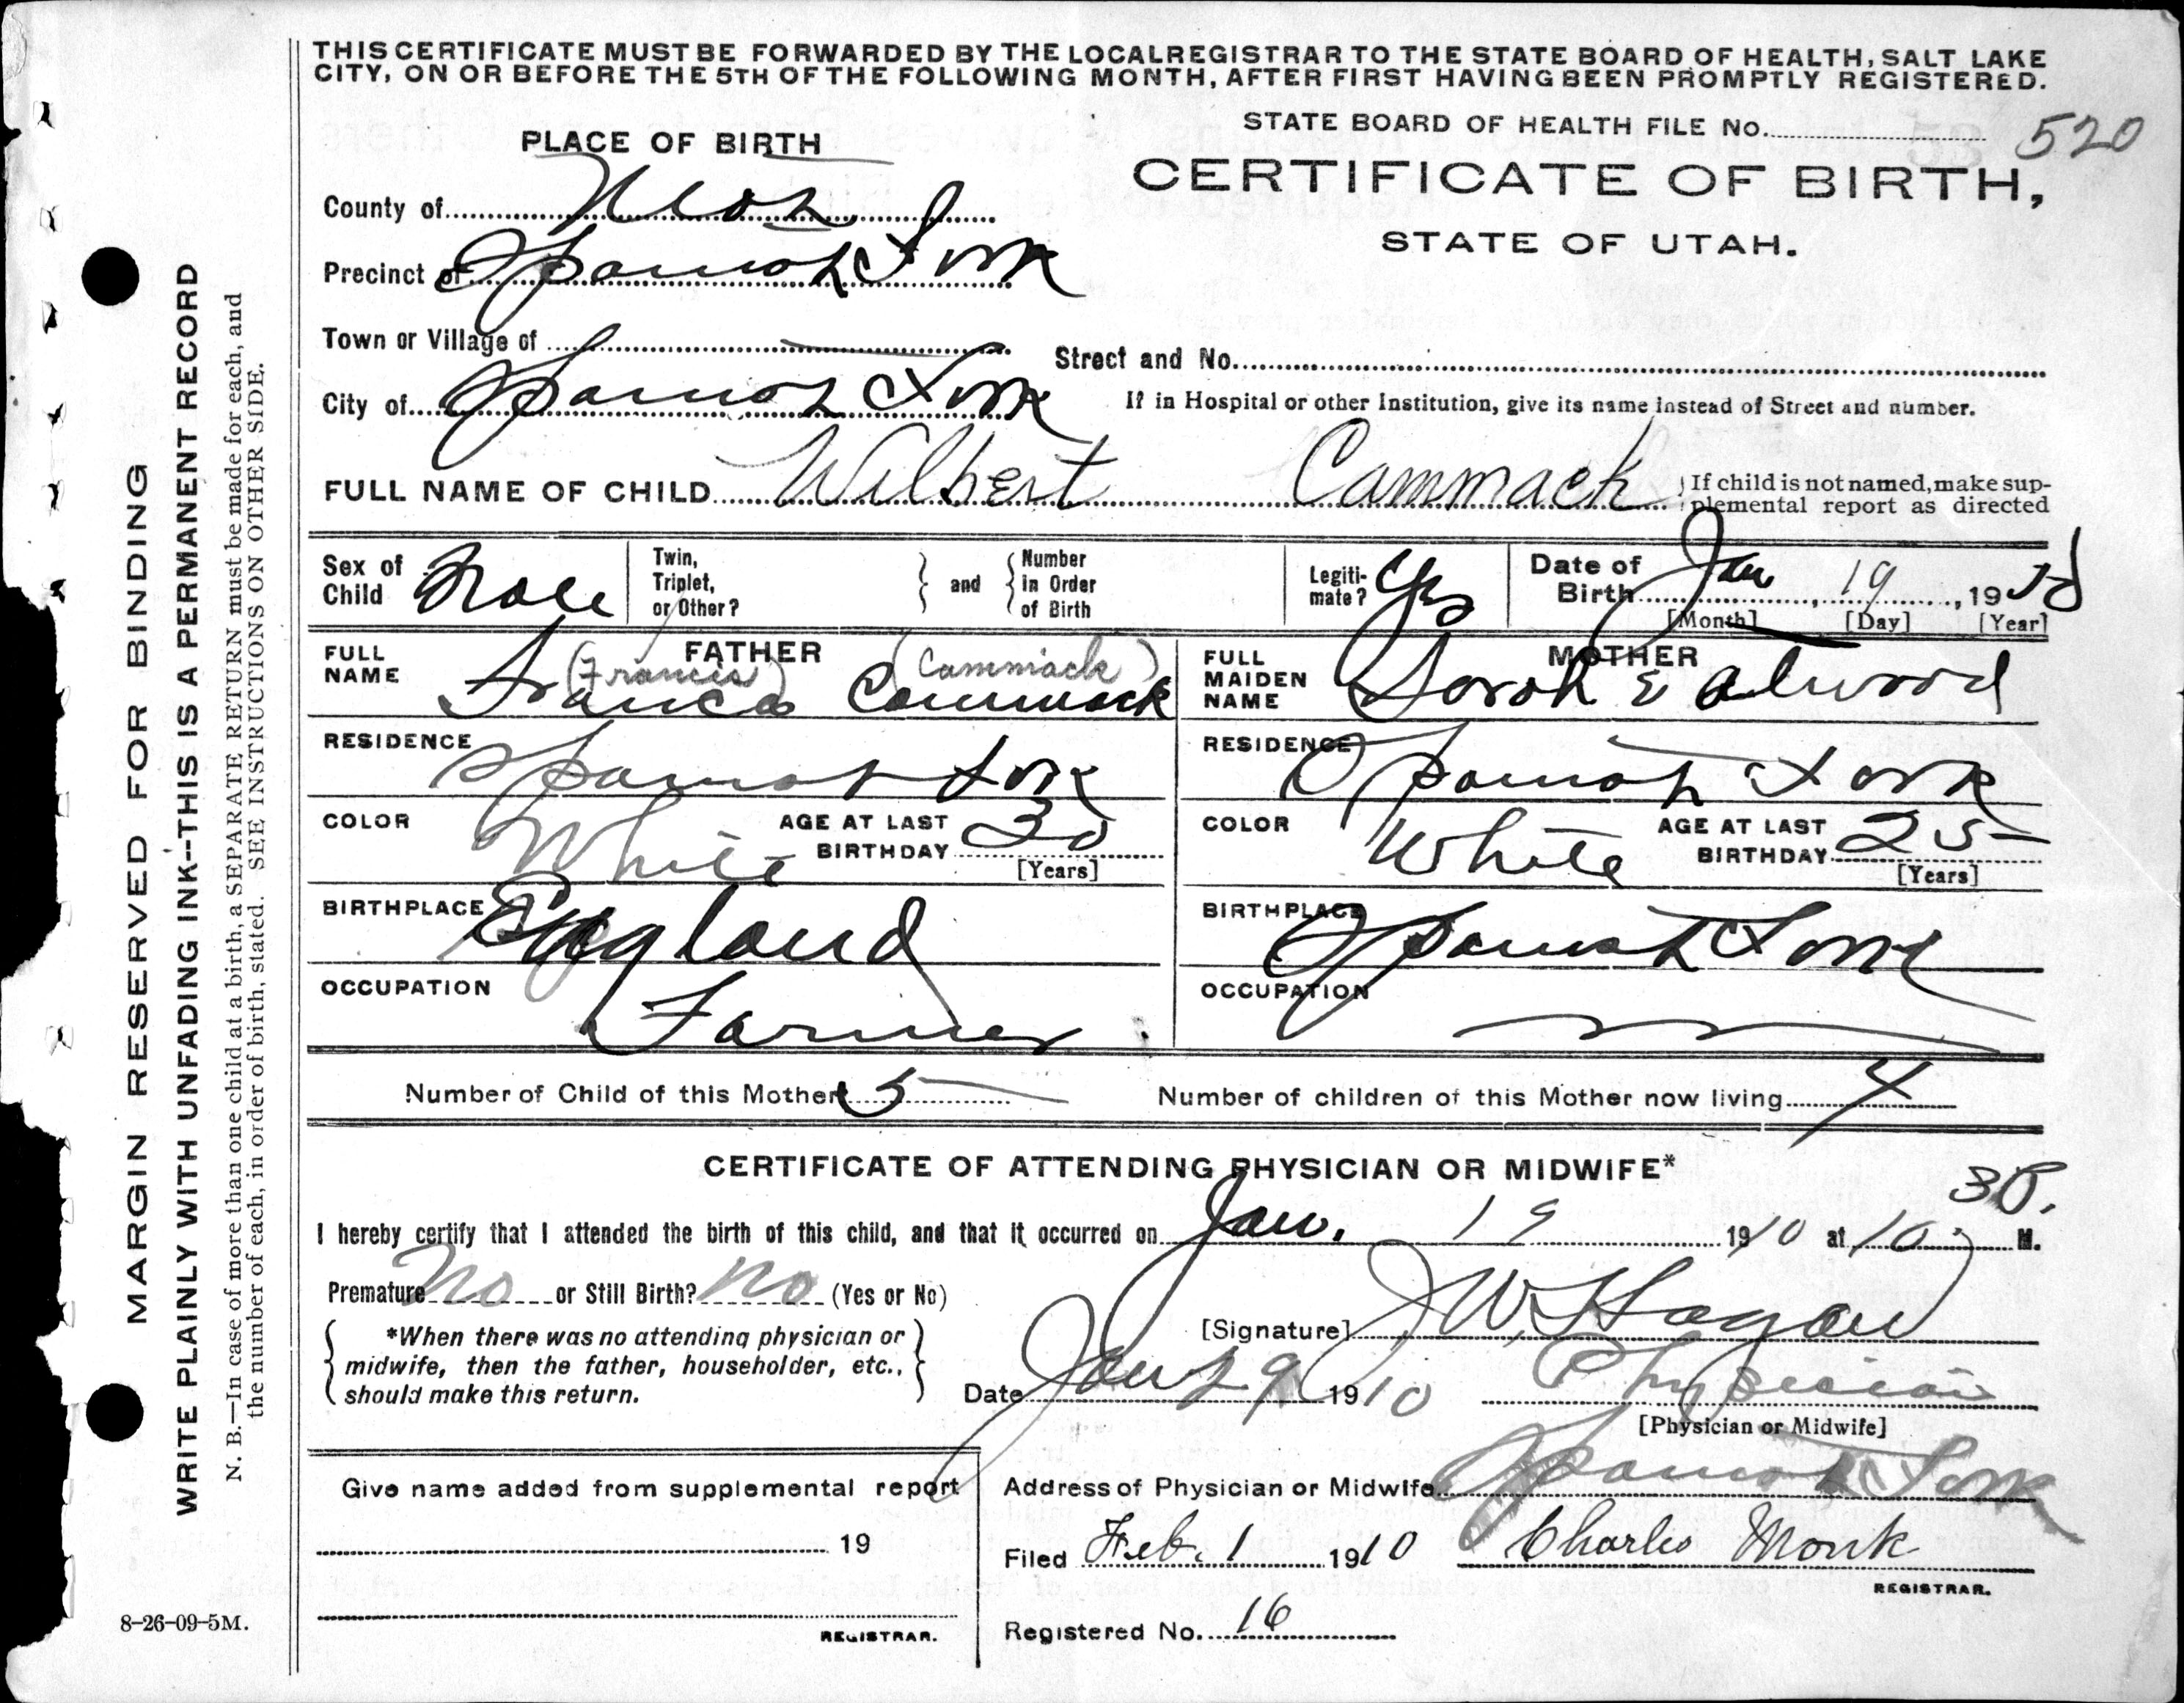 THIS CERTIFICATE MUST BE FORWARDED BY THE LOCAL REGISTRAR TO THE STATE BOARD OF HEALTH, SALT LAKE
CITY, ON OR BEFORE THE 5TH OF THE FOLLOWING MONTH, AFTER FIRST HAVING BEEN PROMPTLY REGISTERED.
STATE BOARD OF HEALTH FILE No. 520
PLACE OF BIRTH
CERTIFICATE OF BIRTH,
STATE OF UTAH.
County of Utah
Precinct of Spanish Fork
Town or Village of
Street and No.
City of Spanish Fork
If in Hospital or other Institution, give its name instead of Street and number.
FULL NAME OF CHILD Wilbert Cammack
If child is not named, make sup-
plemental report as directed
Sex of Child Male
Twin, Triplet, or Other?
and
Number in Order of Birth
Legiti-mate? Yes
Date of Birth Jan 19, 1910
[Month] [Day] [Year]
FATHER
FULL NAME (Francis) (Cammack)
Francis Cammack
MOTHER
FULL MAIDEN NAME Sarah E Atwood
RESIDENCE Spanish Fork
RESIDENCE Spanish Fork
COLOR White
AGE AT LAST BIRTHDAY 30
[Years]
COLOR White
AGE AT LAST BIRTHDAY 25
[Years]
BIRTHPLACE England
BIRTHPLACE Spanish Fork
OCCUPATION Farmer
OCCUPATION
Number of Child of this Mother 5
Number of children of this Mother now living 4
CERTIFICATE OF ATTENDING PHYSICIAN OR MIDWIFE*
I hereby certify that I attended the birth of this child, and that it occurred on Jan. 19 1910 at 10:3 P. M.
Premature No or Still Birth? No (Yes or No)
*When there was no attending physician or
midwife, then the father, householder, etc.,
should make this return.
[Signature] J W Hagan
Date Jan 29 1910
Physician
[Physician or Midwife]
Give name added from supplemental report
19
REGISTRAR.
Address of Physician or Midwife Spanish Fork
Filed Feb. 1 1910 Charles Monk
REGISTRAR.
Registered No. 16
8-26-09-5M.
MARGIN RESERVED FOR BINDING
WRITE PLAINLY WITH UNFADING INK--THIS IS A PERMANENT RECORD
N. B.—In case of more than one child at a birth, a SEPARATE RETURN must be made for each, and
the number of each, in order of birth, stated. SEE INSTRUCTIONS ON OTHER SIDE.